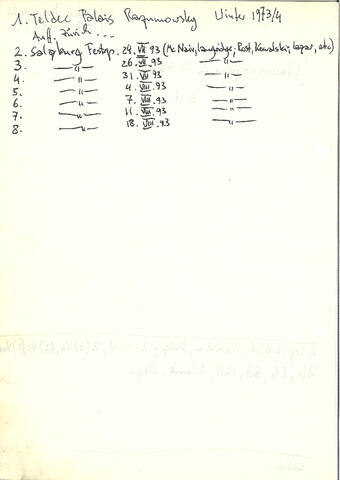 1. Teldec Palais Rasumowsky Winter 1973/4
Auf. Zürich ...
2. Salzburg Festsp. 24. VII 93 (Mc Nair, Langridge, Post, Kowalski, Lopar, etc)
3. —„— 26. VII. 93 —„—
4. —„— 31. VII 93 —„—
5. —„— 4. VIII 93 —„—
6. —„— 7. VIII 93 —„—
7. —„— 11. VIII 93 —„—
8. —„— 18. VIII 93 —„—